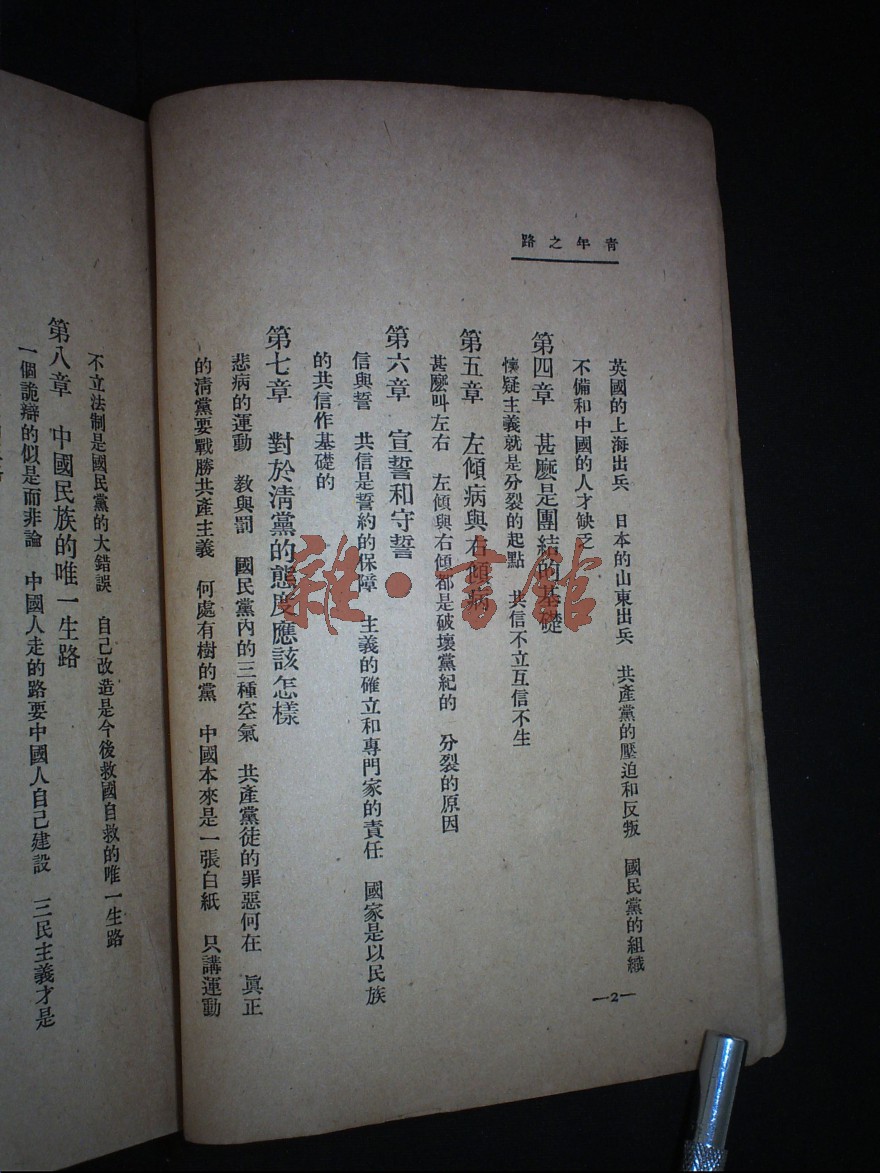 青年之路
英國的上海出兵　日本的山東出兵　共產黨的壓迫和反叛　國民黨的組織
不備和中國的人才缺乏
第四章　甚麼是團結的基礎
懷疑主義就是分裂的起點　共信不立互信不生
第五章　左傾病與右傾病
甚麼叫左右　左傾與右傾都是破壞黨紀的　分裂的原因
第六章　宣誓和守誓
信與誓　共信是誓約的保障　主義的確立和專門家的責任　國家是以民族
的共信作基礎的
第七章　對於淸黨的態度應該怎樣
悲病的運動　教與罰　國民黨內的三種空氣　共產黨徒的罪惡何在　眞正
的淸黨要戰勝共產主義　何處有樹的黨　中國本來是一張白紙　只講運動
—2—
不立法制是國民黨的大錯誤　自己改造是今後救國自救的唯一生路
第八章　中國民族的唯一生路
一個詭辯的似是而非論　中國人走的路要中國人自己建設　三民主義才是
雜·書館